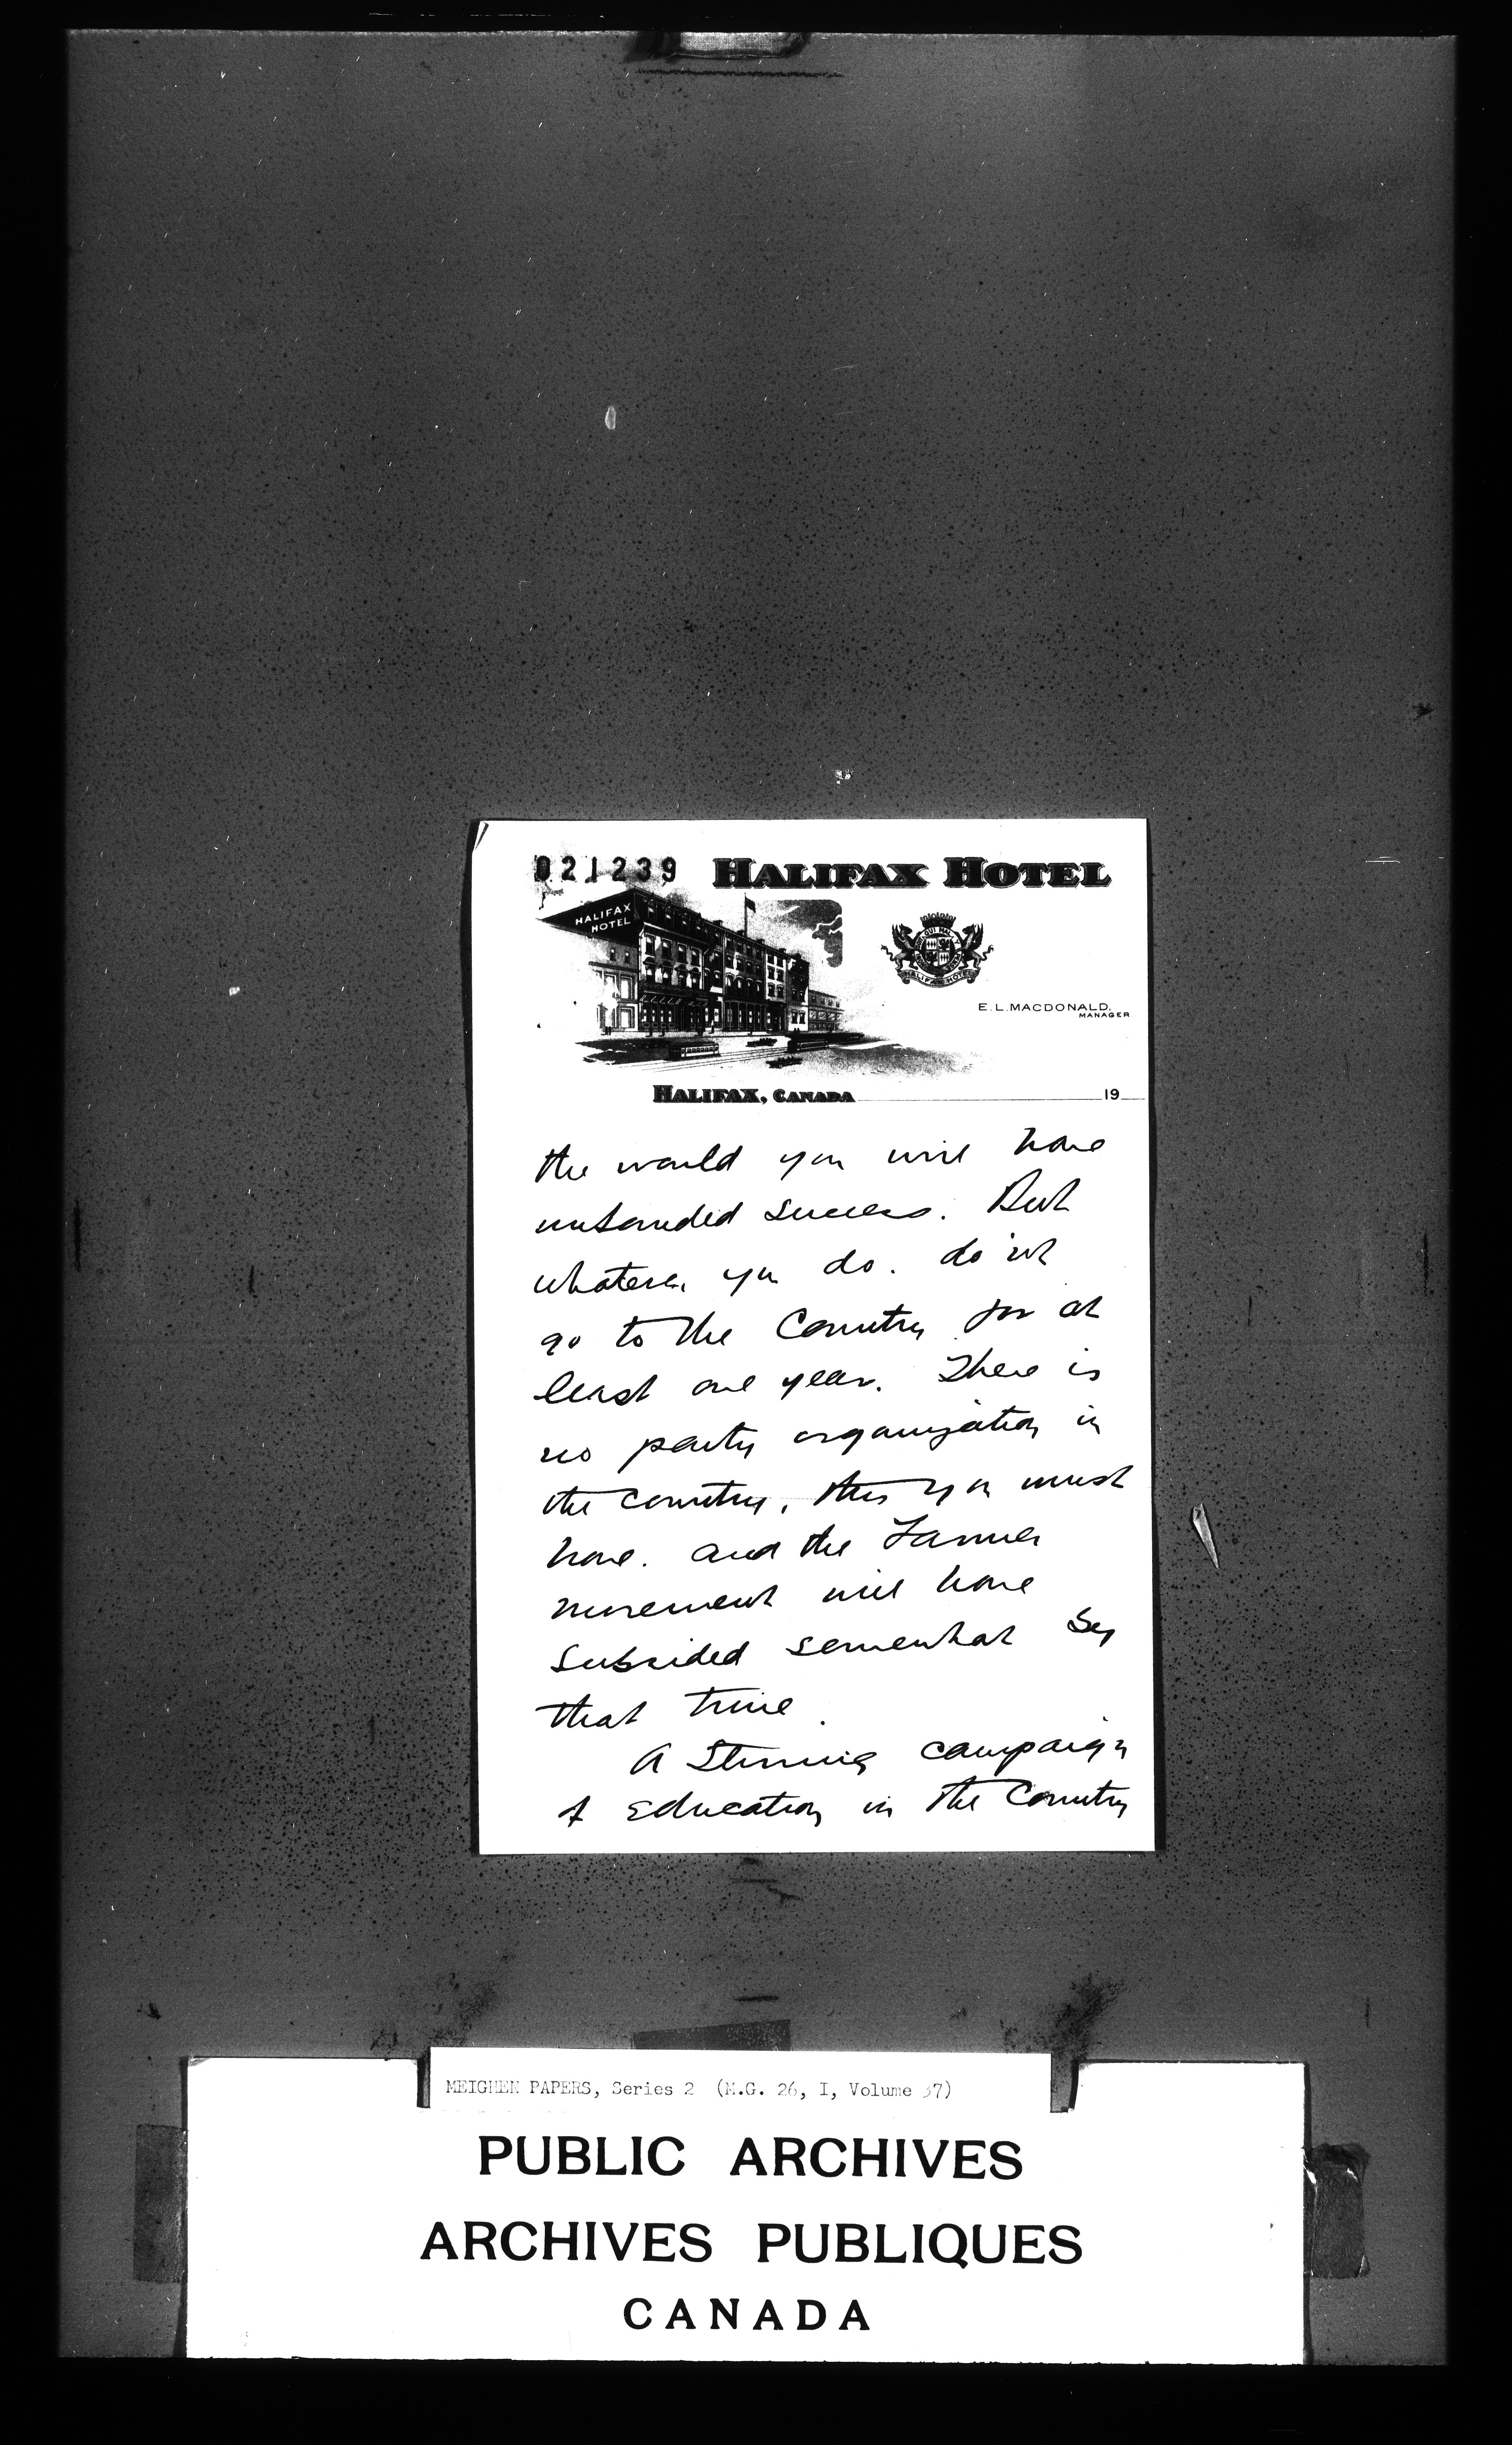 021239 HALIFAX HOTEL
HALIFAX
HOTEL
HALIFAX HOTEL
E.L. MACDONALD.
MANAGER
HALIFAX, CANADA 19
the would you will have
unbounded success. But
whatever you do. do'nt
go to the Country for at
least one year. There is
no party organization in
the country, this you must
have. and the Farmer
movement will have
subsided somewhat by
that time.
A Stirring campaign
of education in the Country
MEIGHEN PAPERS, Series 2 (M.G. 26, I, Volume 37)
PUBLIC ARCHIVES
ARCHIVES PUBLIQUES
CANADA